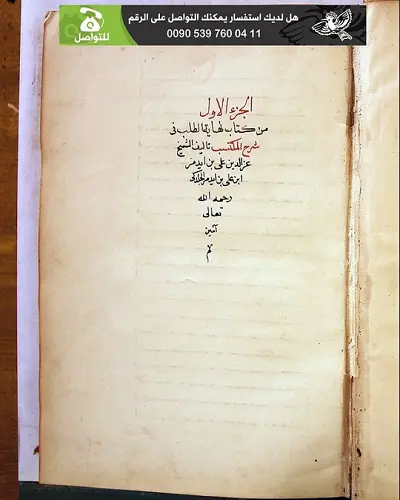 هل لديك استفسار يمكنك التواصل على الرقم
0090 539 760 04 11
للتواصل
الجزء الاول
من كتاب نهاية الطلب فى
شرح المكتسب تاليف الشيخ
عزالدين على بن ايدمر
ابن على بن ايدمر الجلدكى
رحمه الله
تعالى
آمين
تم